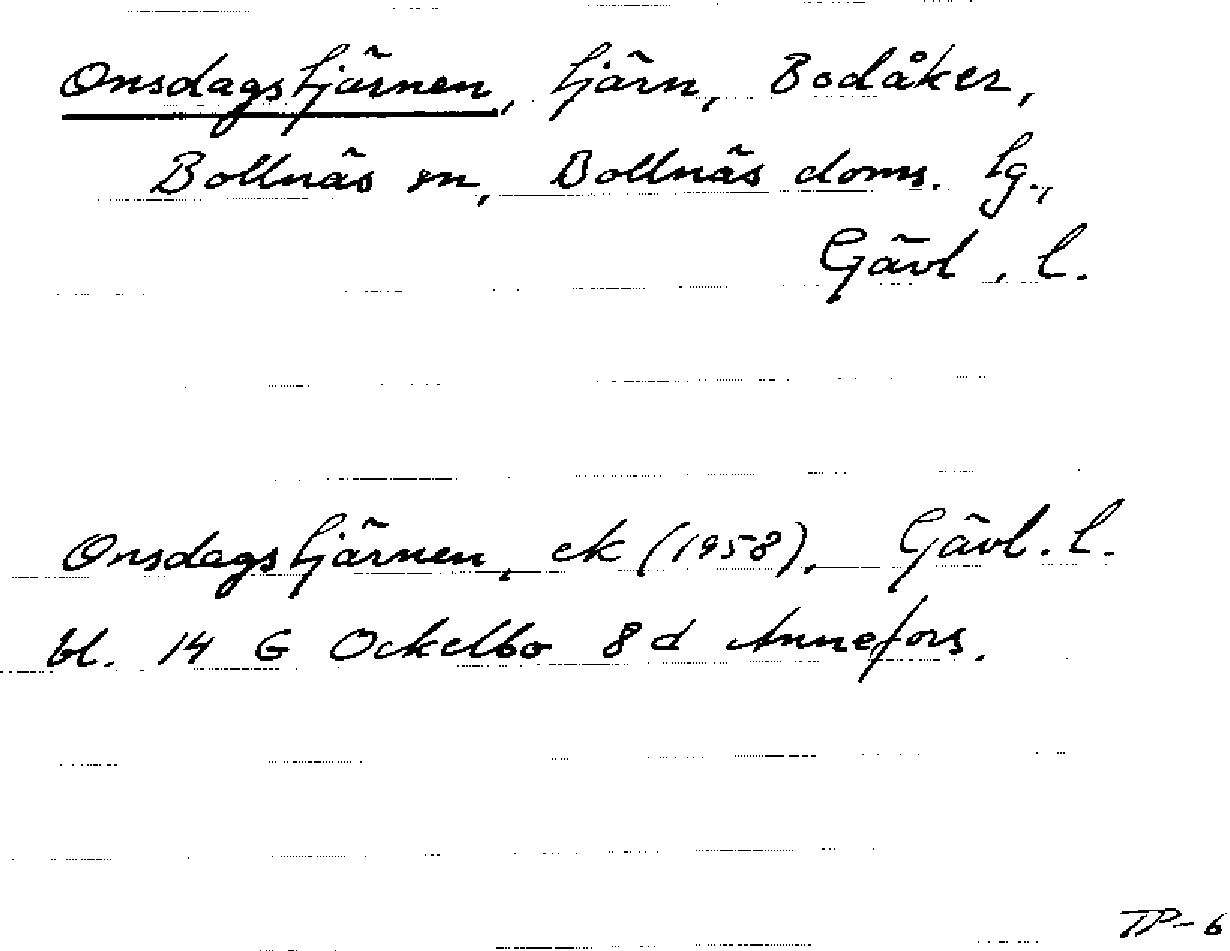 Onsdagstjärnen, tjärn, Bodåker,
Bollnäs sn, Bollnäs doms. tg.,
Gävl. l.
Onsdagstjärnen, ek (1958), Gävl. l.
bl. 14 G Ockelbo 8 d Annefors.
TP-6